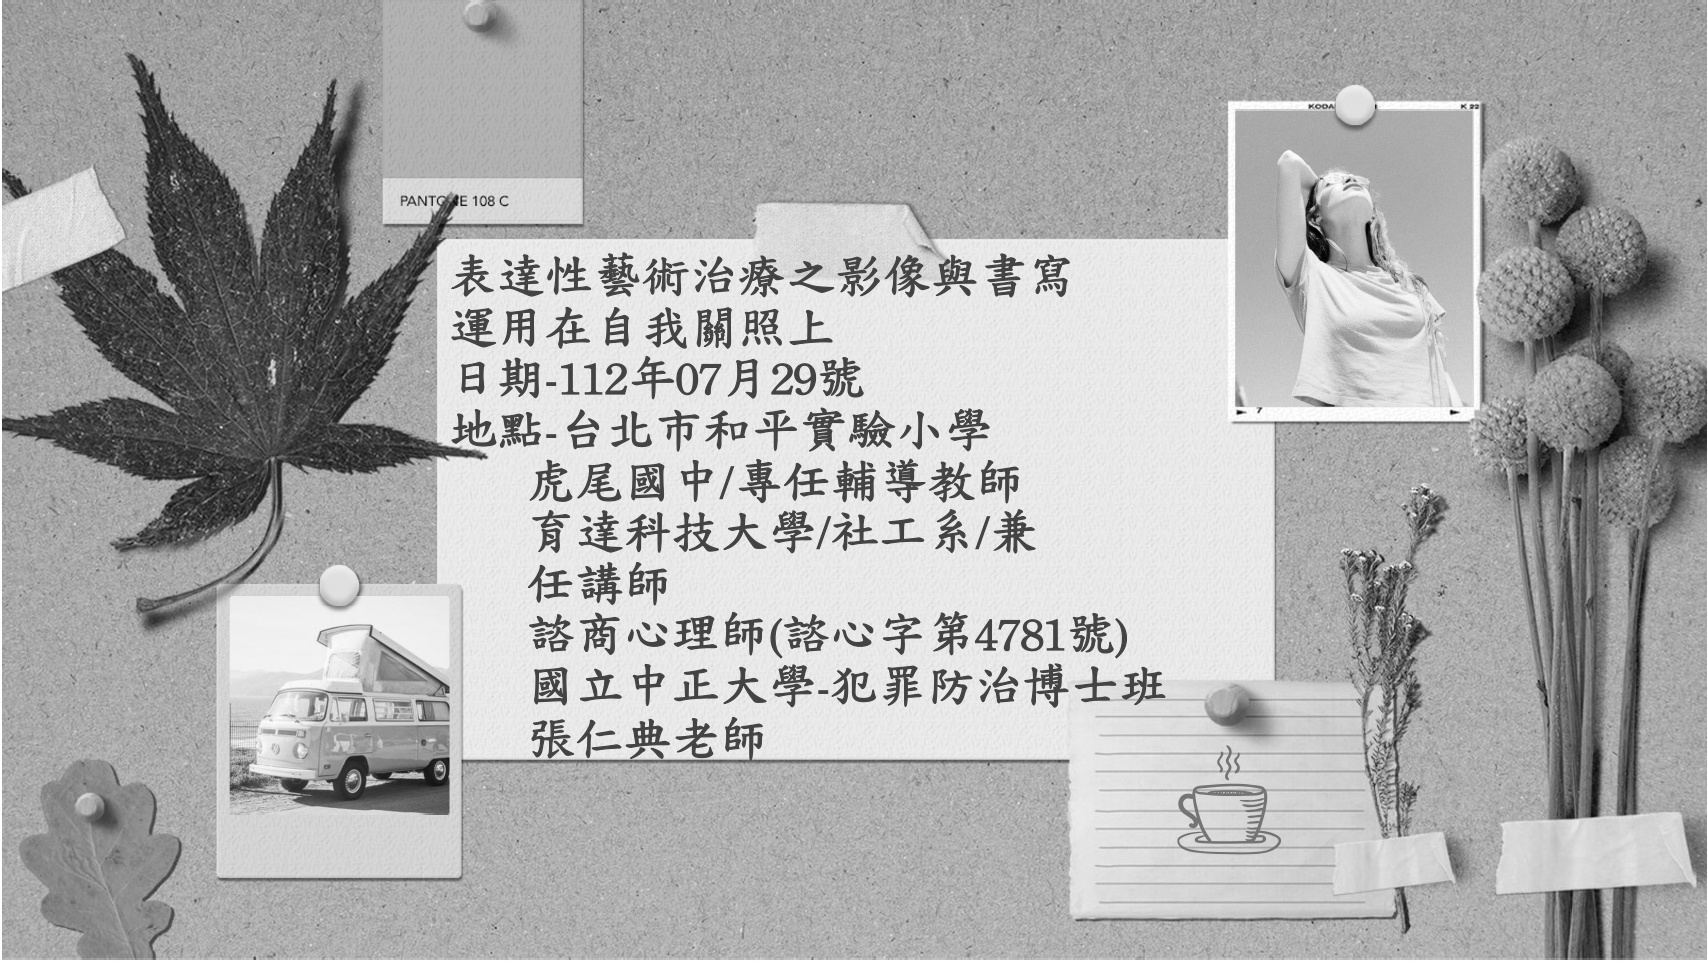 PANTONE 108 C
KODA
K 22
表達性藝術治療之影像與書寫
運用在自我關照上
日期-112年07月29號
地點-台北市和平實驗小學
虎尾國中/專任輔導教師
育達科技大學/社工系/兼
任講師
諮商心理師(諮心字第4781號)
國立中正大學-犯罪防治博士班
張仁典老師
7